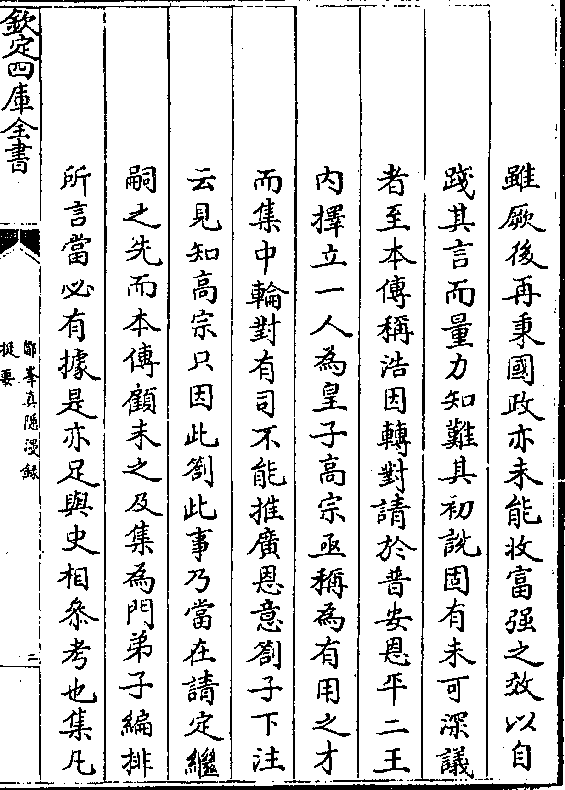 雖厥後再秉國政亦未能收富强之效以自
踐其言而量力知難其初說固有未可深議
者至本傳稱浩因轉對請於普安恩平二王
内擇立一人為皇子高宗亟稱為有用之才
而集中輪對有司不能推廣恩意劄子下注
云見知高宗只因此劄此事乃當在請定繼
嗣之先而本傳顧未之及集為門弟子編排
所言當必有據是亦足與史相叅考也集凡
欽定四庫全書
鄮峯真隠漫録
提要
三